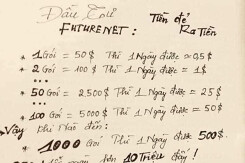 Đầu Tư Tiền đề
FUTURENET: Ra Tiền
* 1 Gói = 50$ Thì 1 Ngày được ≈ 0,5$
* 2 Gói = 100$ Thì 1 Ngày được = 1$
...
* 50 Gói = 2.500$ Thì 1 Ngày được = 25$
...
* 100 Gói = 5.000$ Thì 1 Ngày được = 50$
→ Vậy phí Nào đến:
* 1000 Gói Thì 1 Ngày được 500$.
hơn 10 Triệu đây!